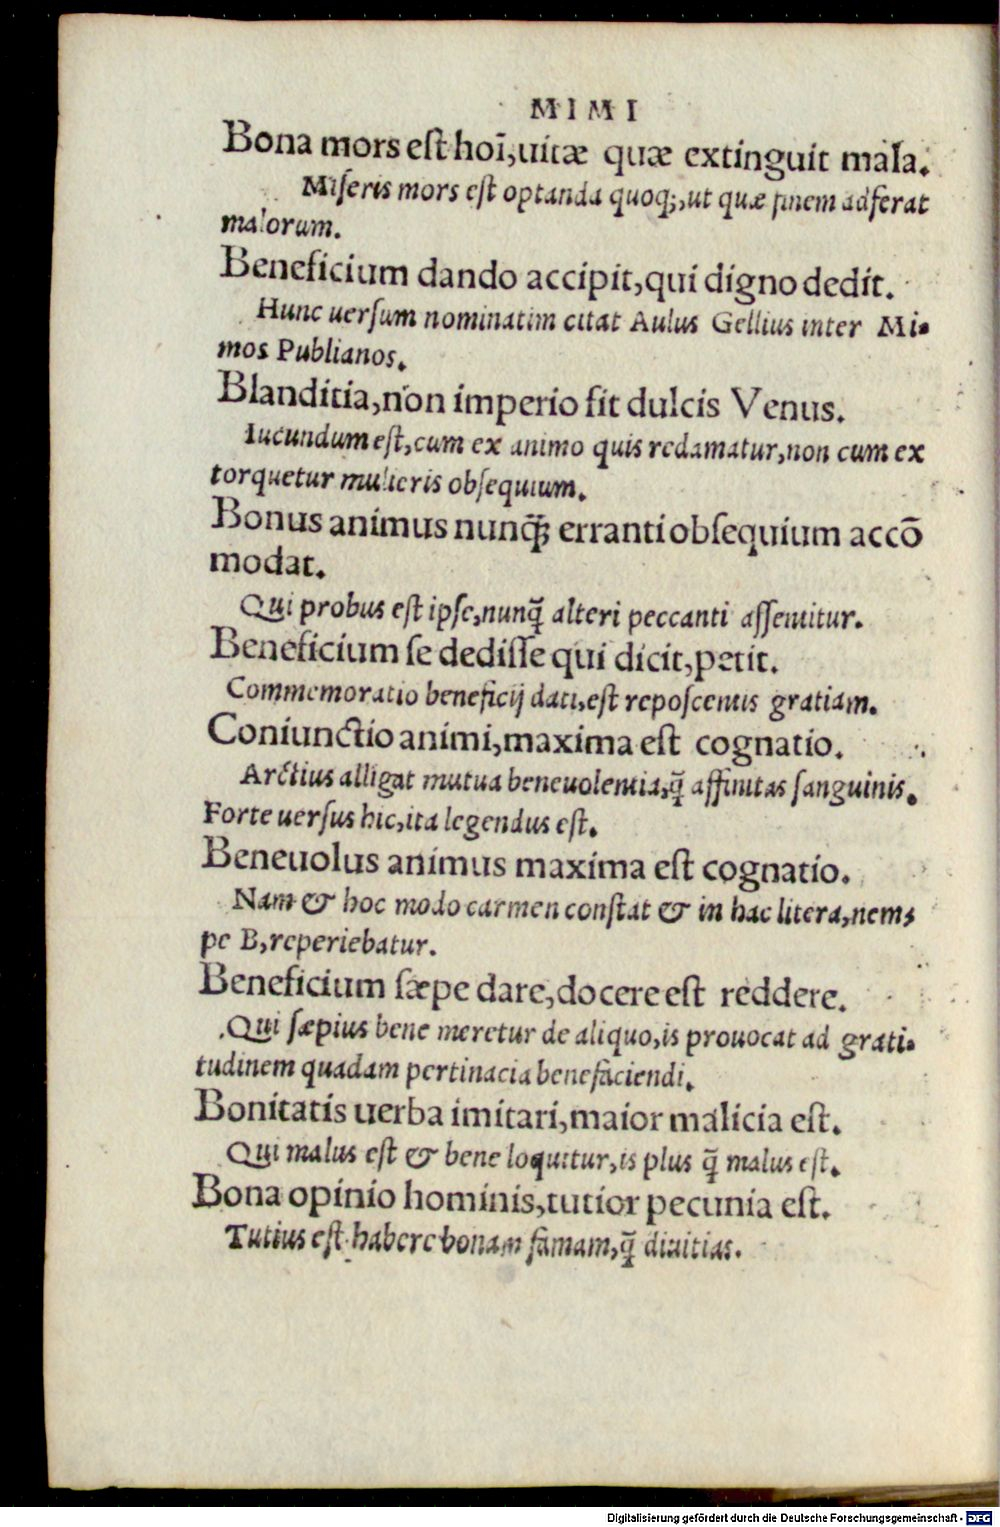 MIMI
Bona mors est hoī, uitæ quæ extinguit mala.
Miseris mors est optanda quoq;, ut quæ finem adferat
malorum.
Beneficium dando accipit, qui digno dedit.
Hunc uersum nominatim citat Aulus Gellius inter Mi-
mos Publianos.
Blanditia, non imperio fit dulcis Venus.
Iucundum est, cum ex animo quis redamatur, non cum ex
torquetur mulieris obsequium.
Bonus animus nunq̃; erranti obsequium accõ
modat.
Qui probus est ipse, nunq̃ alteri peccanti assentitur.
Beneficium se dedisse qui dicit, petit.
Commemoratio beneficij dati, est reposcentis gratiam.
Coniunctio animi, maxima est cognatio.
Arctius alligat mutua beneuolentia, q̃ affinitas sanguinis.
Forte uersus hic, ita legendus est.
Beneuolus animus maxima est cognatio.
Nam & hoc modo carmen constat & in hac litera, nem-
pe B, reperiebatur.
Beneficium sæpe dare, docere est reddere.
Qui sæpius bene meretur de aliquo, is prouocat ad grati-
tudinem quadam pertinacia benefaciendi.
Bonitatis uerba imitari, maior malicia est.
Qui malus est & bene loquitur, is plus q̃ malus est.
Bona opinio hominis, tutior pecunia est.
Tutius est habere bonam famam, q̃ diuitias.
Digitalisierung gefördert durch die Deutsche Forschungsgemeinschaft - DFG